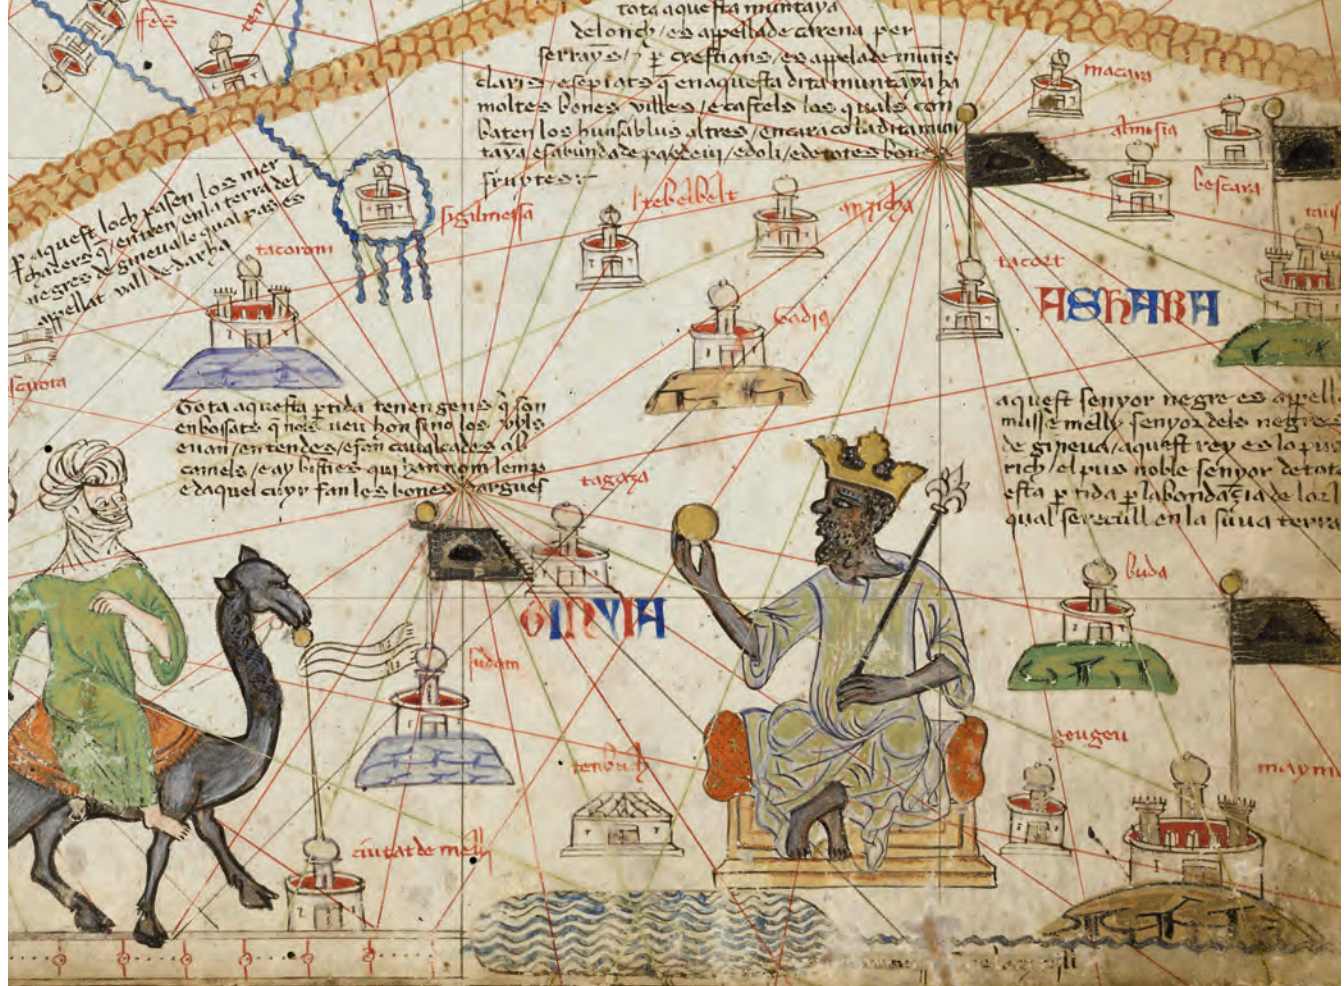 tota aquesta muntaya
de lonch / es appellade carena per
serrayns / ⁊ p̄ crestians / es appelade munis
claris / e sepiats q̄ en aquesta dita muntāya ha
moltes bones villes / e castels los quals con
baten los huns ab lus altres / encara co la dita mun
tāya es abunda de pa e de vi / e doli / e de totes bones
fruytes
ffes
macara
almisia
bescara
p̄ aquest loch pasen los mer
chaders q̄ entren en la terra del
negres de gineva lo qual pas es
appellat vall de darha
sigilmessa
tebelbelt
anzicha
tacort
tacorom
ASHARA
badiq
scuota
Tota aquesta p̄tida tenen gens q̄ son
enboisats q̄ nols veu hom sino los uyls
e van en tendes / e fan cavalcades ab
camels / e ay bisties qui han nom lemp
e daquel cuyr fan les bones dargues
aquest senyor negre es appell
musse melly senyor dels negres
de gineva / aquest rey es lo pus
rich / el pus noble senyor de tota
esta p̄tida p̄ labondaçia de lor l
qual se recull en la suua terra
tagaza
buda
GINYIA
sudam
tenbuch
geugeu
maym
ciutat de melli